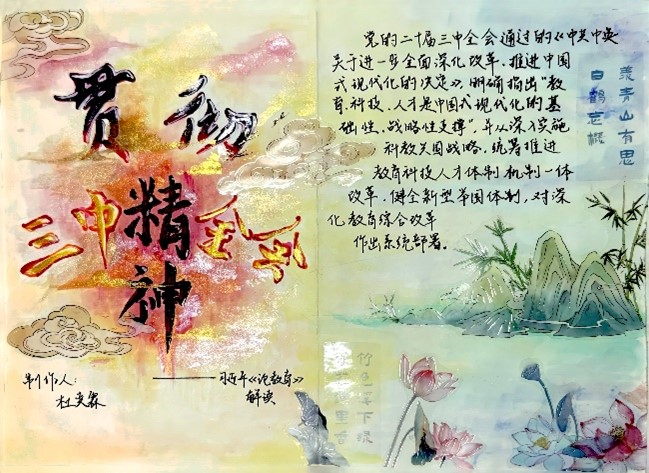 贯彻
三中全会
精神
——习近平《论教育》
解读
制作人:
党的二十届三中全会通过的《中共中央
关于进一步全面深化改革、推进中国
式现代化的决定》,明确指出“教
育、科技、人才是中国式现代化的基
础性、战略性支撑”,并从深入实施
科教兴国战略,统筹推进
教育科技人才体制机制一体
改革,健全新型举国体制,对深
化教育综合改革
作出系统部署。
羡青山有思
白鹤忘机